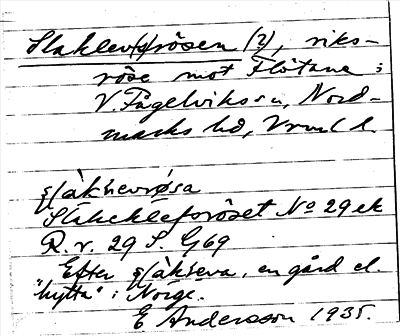 Slaklev(s)rösen (?), riks-
röse mot Flötane i
V. Fågelviks sn, Nord-
marks hd, Vrml l.
Slakekleforöset No 29 ek
R. r. 29 S. G69
Efter en gård el.
"hytta" i Norge.
E Andersson 1935.